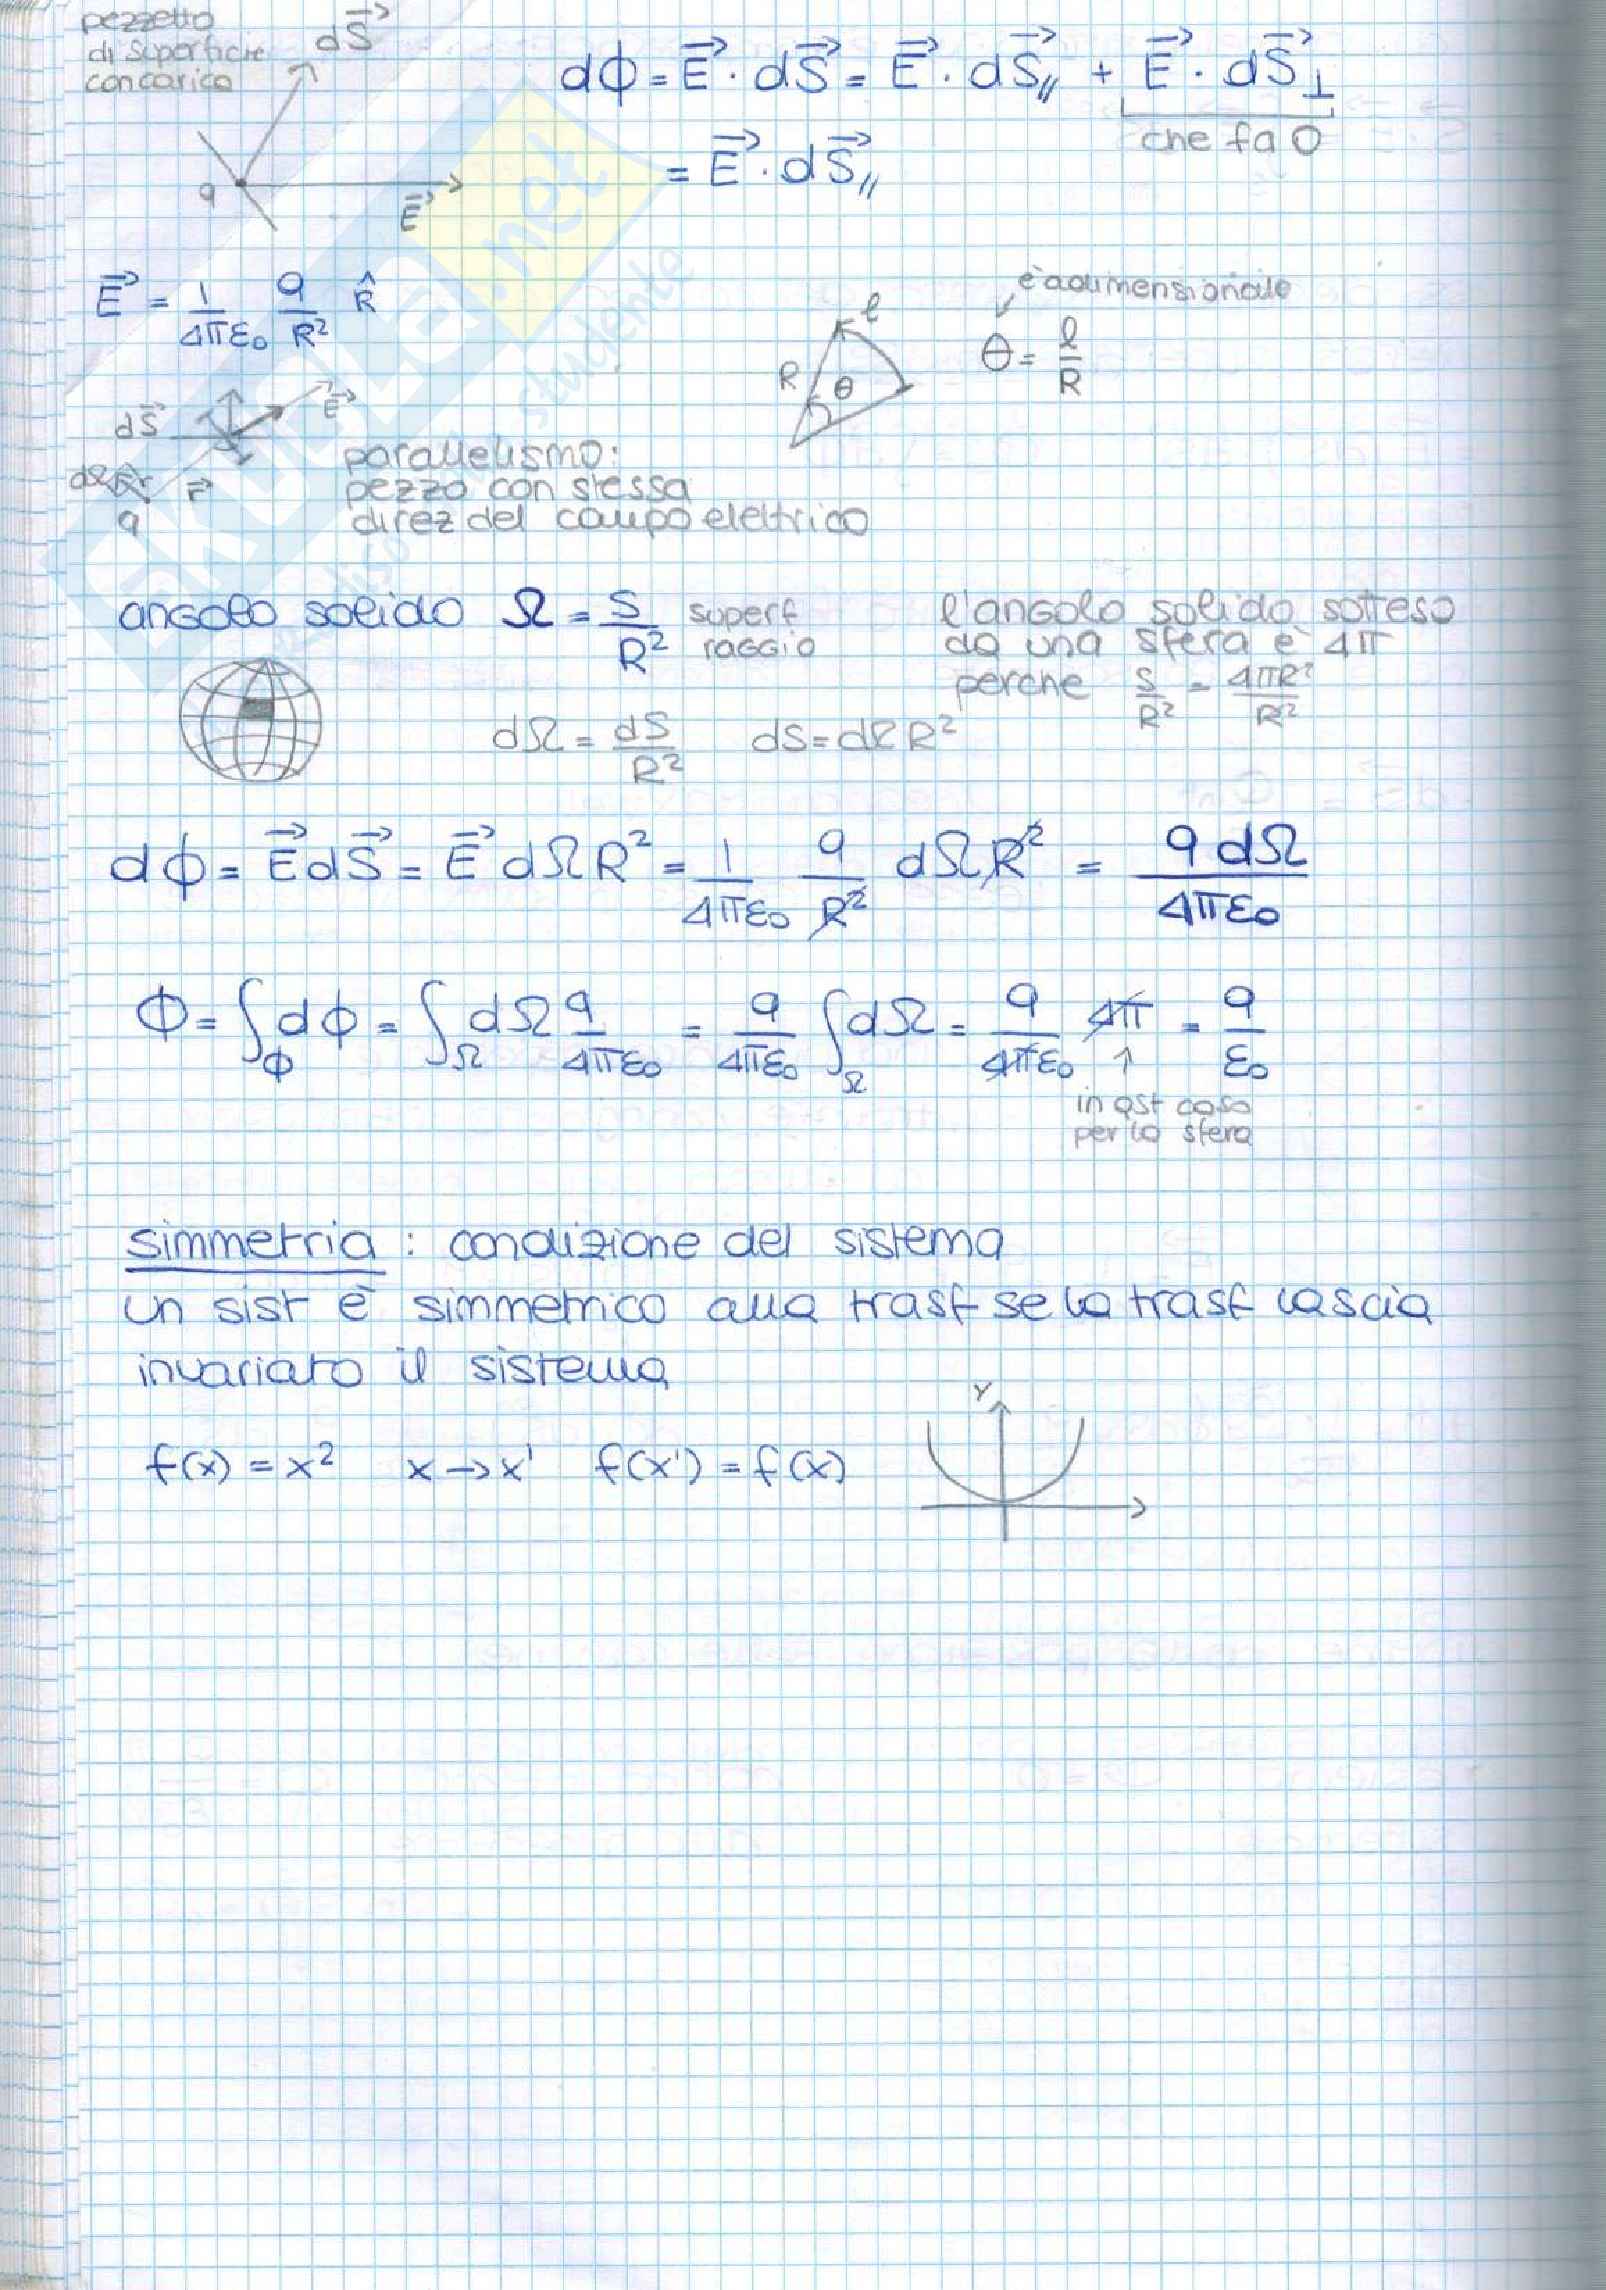 pezzetto
di superficie
con carica
dS⃗
q
E⃗
dϕ = E⃗ · dS⃗ = E⃗ · dS⃗// + E⃗ · dS⃗⊥
che fa 0
= E⃗ · dS⃗//
E⃗ = 1/4πε₀ q/R² R̂
l
R
θ
è adimensionale
θ = l/R
dS⃗
E⃗
r⃗
q
parallelismo:
pezzo con stessa
direz del campo elettrico
angolo solido Ω = S/R² superf raggio
l'angolo solido sotteso
da una sfera è 4π
perche S/R² = 4πR²/R²
dΩ = dS/R² dS = dΩ R²
dϕ = E⃗ dS⃗ = E⃗ dΩ R² = 1/4πε₀ q/R² dΩ R² = q dΩ/4πε₀
Φ = ∫ϕ dϕ = ∫Ω dΩ q/4πε₀ = q/4πε₀ ∫Ω dΩ = q/4πε₀ 4π = q/ε₀
↑
in qst caso
per la sfera
simmetria : condizione del sistema
un sist è simmetrico alla trasf se la trasf lascia
invariato il sistema
f(x) = x² x → x' f(x') = f(x)
Y
SKUOLA.net
studente